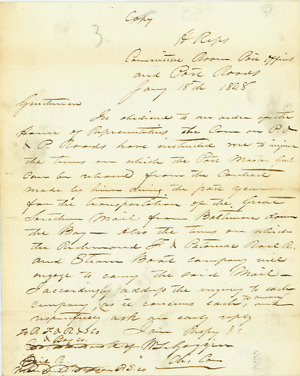 Copy
3
H Reps
Committee Room Post Offices
and Post Roads
Jany 18th
Gentlemen
In obedience to an order of the
House of Representatives the Com on P.O
& P. Roads have instructed me to inquire
the terms on which the Post Master Genl
can be released from the Contract
made by him during the past year
for the transportation of the Great
Southern Mail from Baltimore down
the Bay - Also the terms on which
the Richmond F & Potomac Rail R.
and Steam Boat company will
engage to carry the said Mail -
I accordingly address the enquiry to each
company (as it concerns each) &
respectfully ask an early reply
I am Respy